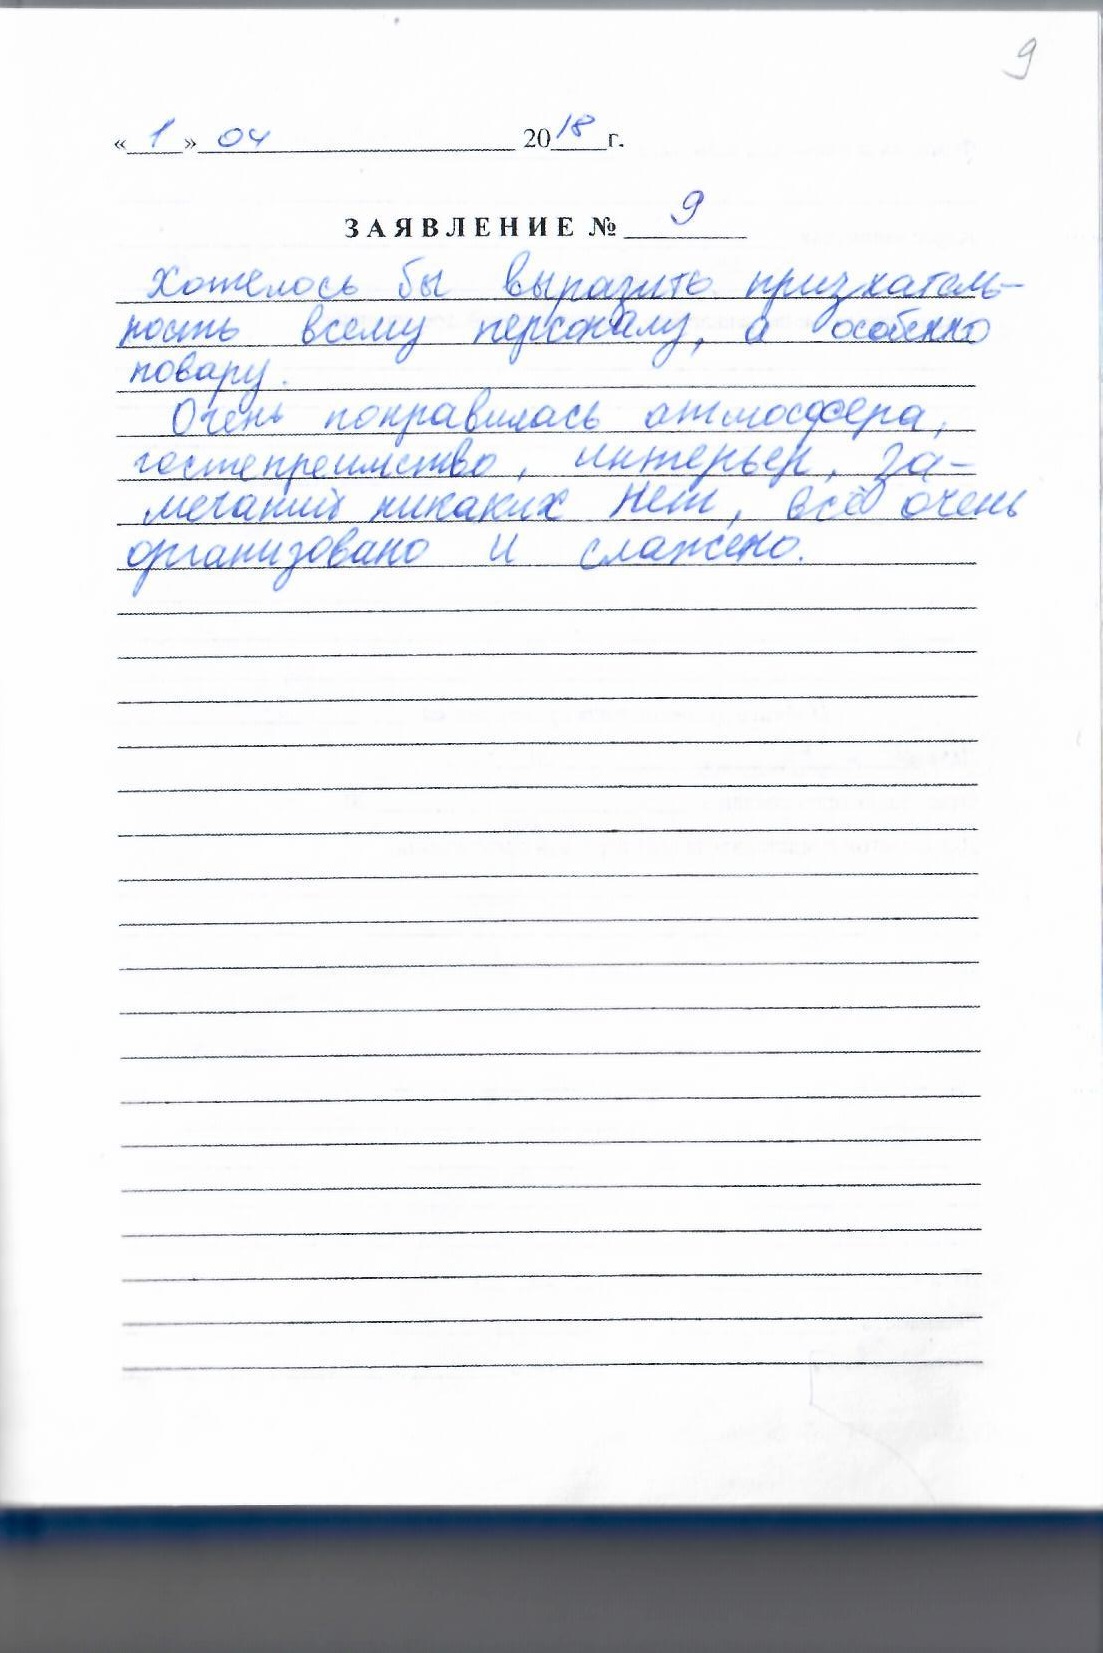 9
«1» 04 2018 г.
ЗАЯВЛЕНИЕ № 9
Хотелось бы выразить признатель-
ность всему персоналу, а особенно
повару.
Очень понравилась атмосфера,
гостепреимство, интерьер, за-
мечаний никаких нет, всё очень
организовано и слажено.